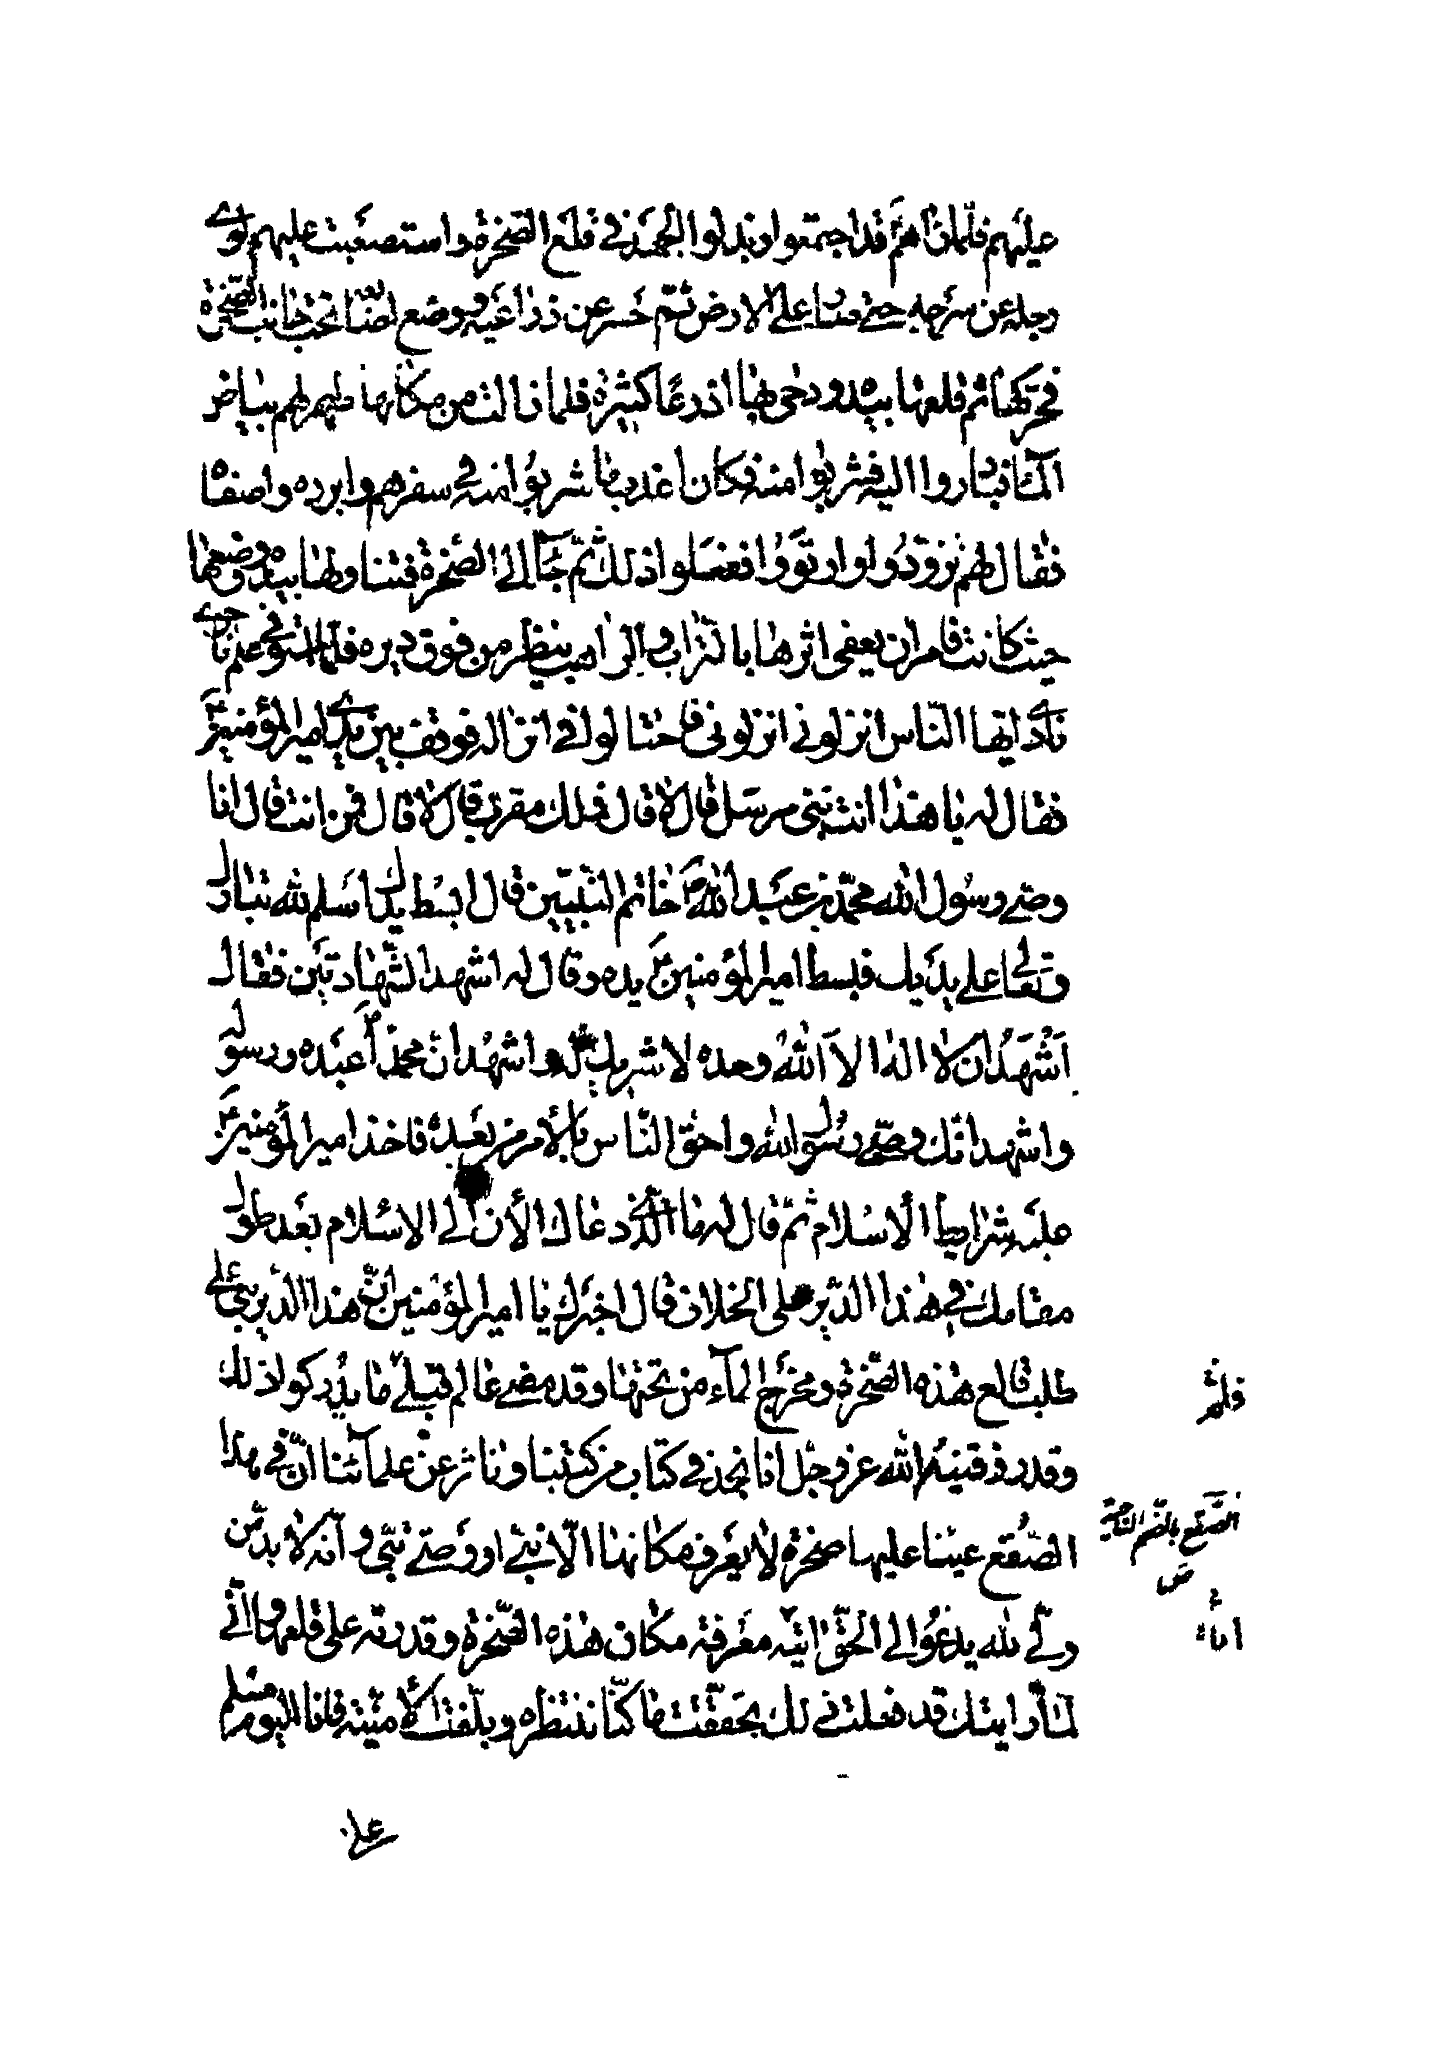 عليهم فلما راهم قد اجتمعوا وبذلوا الجهد في قلع الصخرة واستصعبت عليهم لوى
رجله عن سرجه حتى صار على الارض ثم حسر عن ذراعيه ووضع اصابعه تحت جانب الصخرة
فحركها ثم قلعها بيده ودحى بها اذرعا كثيرة فلما زالت من مكانها ظهر لهم بياض
الماء فبادروا اليه فشربوا منه فكان اعذب ما شربوا منه في سفرهم وابرده واصفاه
فقال لهم تزودوا وارتووا ففعلوا ذلك ثم جاء الى الصخرة فتناولها بيده ووضعها
حيث كانت فامر ان يعفى اثرها بالتراب والراهب ينظر من فوق ديره فلما استوفى علم ما جرى
نادى ايها الناس انزلوني انزلوني فاحتالوا في انزاله فوقف بين يدي امير المؤمنين ع
فقال له يا هذا انت نبي مرسل قال لا قال فملك مقرب قال لا قال فمن انت قال انا
وصي رسول الله محمد بن عبد الله ص خاتم النبيين قال ابسط يدك اسلم لله تبارك
وتعالى على يديك فبسط امير المؤمنين ع يده وقال له اشهد الشهادتين فقال
اشهد ان لا اله الا الله وحده لا شريك له واشهد ان محمدا عبده ورسوله
واشهد انك وصي رسول الله واحق الناس بالامر من بعده فاخذ امير المؤمنين ع
عليه شرايط الاسلام ثم قال له ما الذي دعاك الان الى الاسلام بعد طول
مقامك في هذا الدير على الخلاف قال اخبرك يا امير المؤمنين ان هذا الدير بني على
طلب قالع هذه الصخرة ومخرج الماء من تحتها وقد مضى عالم قبلي ما يدركوا ذلك
وقد رزقنيه الله عز وجل انا نجد في كتاب من كتبنا وناثر عن علمائنا ان في هذا
الصقع عينا عليها صخرة لا يعرف مكانها الا نبي او وصي نبي وانه لا بد من
ولي لله يدعو الى الحق ايته معرفة مكان هذه الصخرة وقدرته على قلعها واني
لما رايتك قد فعلت ذلك تحققت ما كنا ننتظره وبلغت الامنية فانا اليوم مسلم
على
فلم
الصقع بالضم الناحية
ص